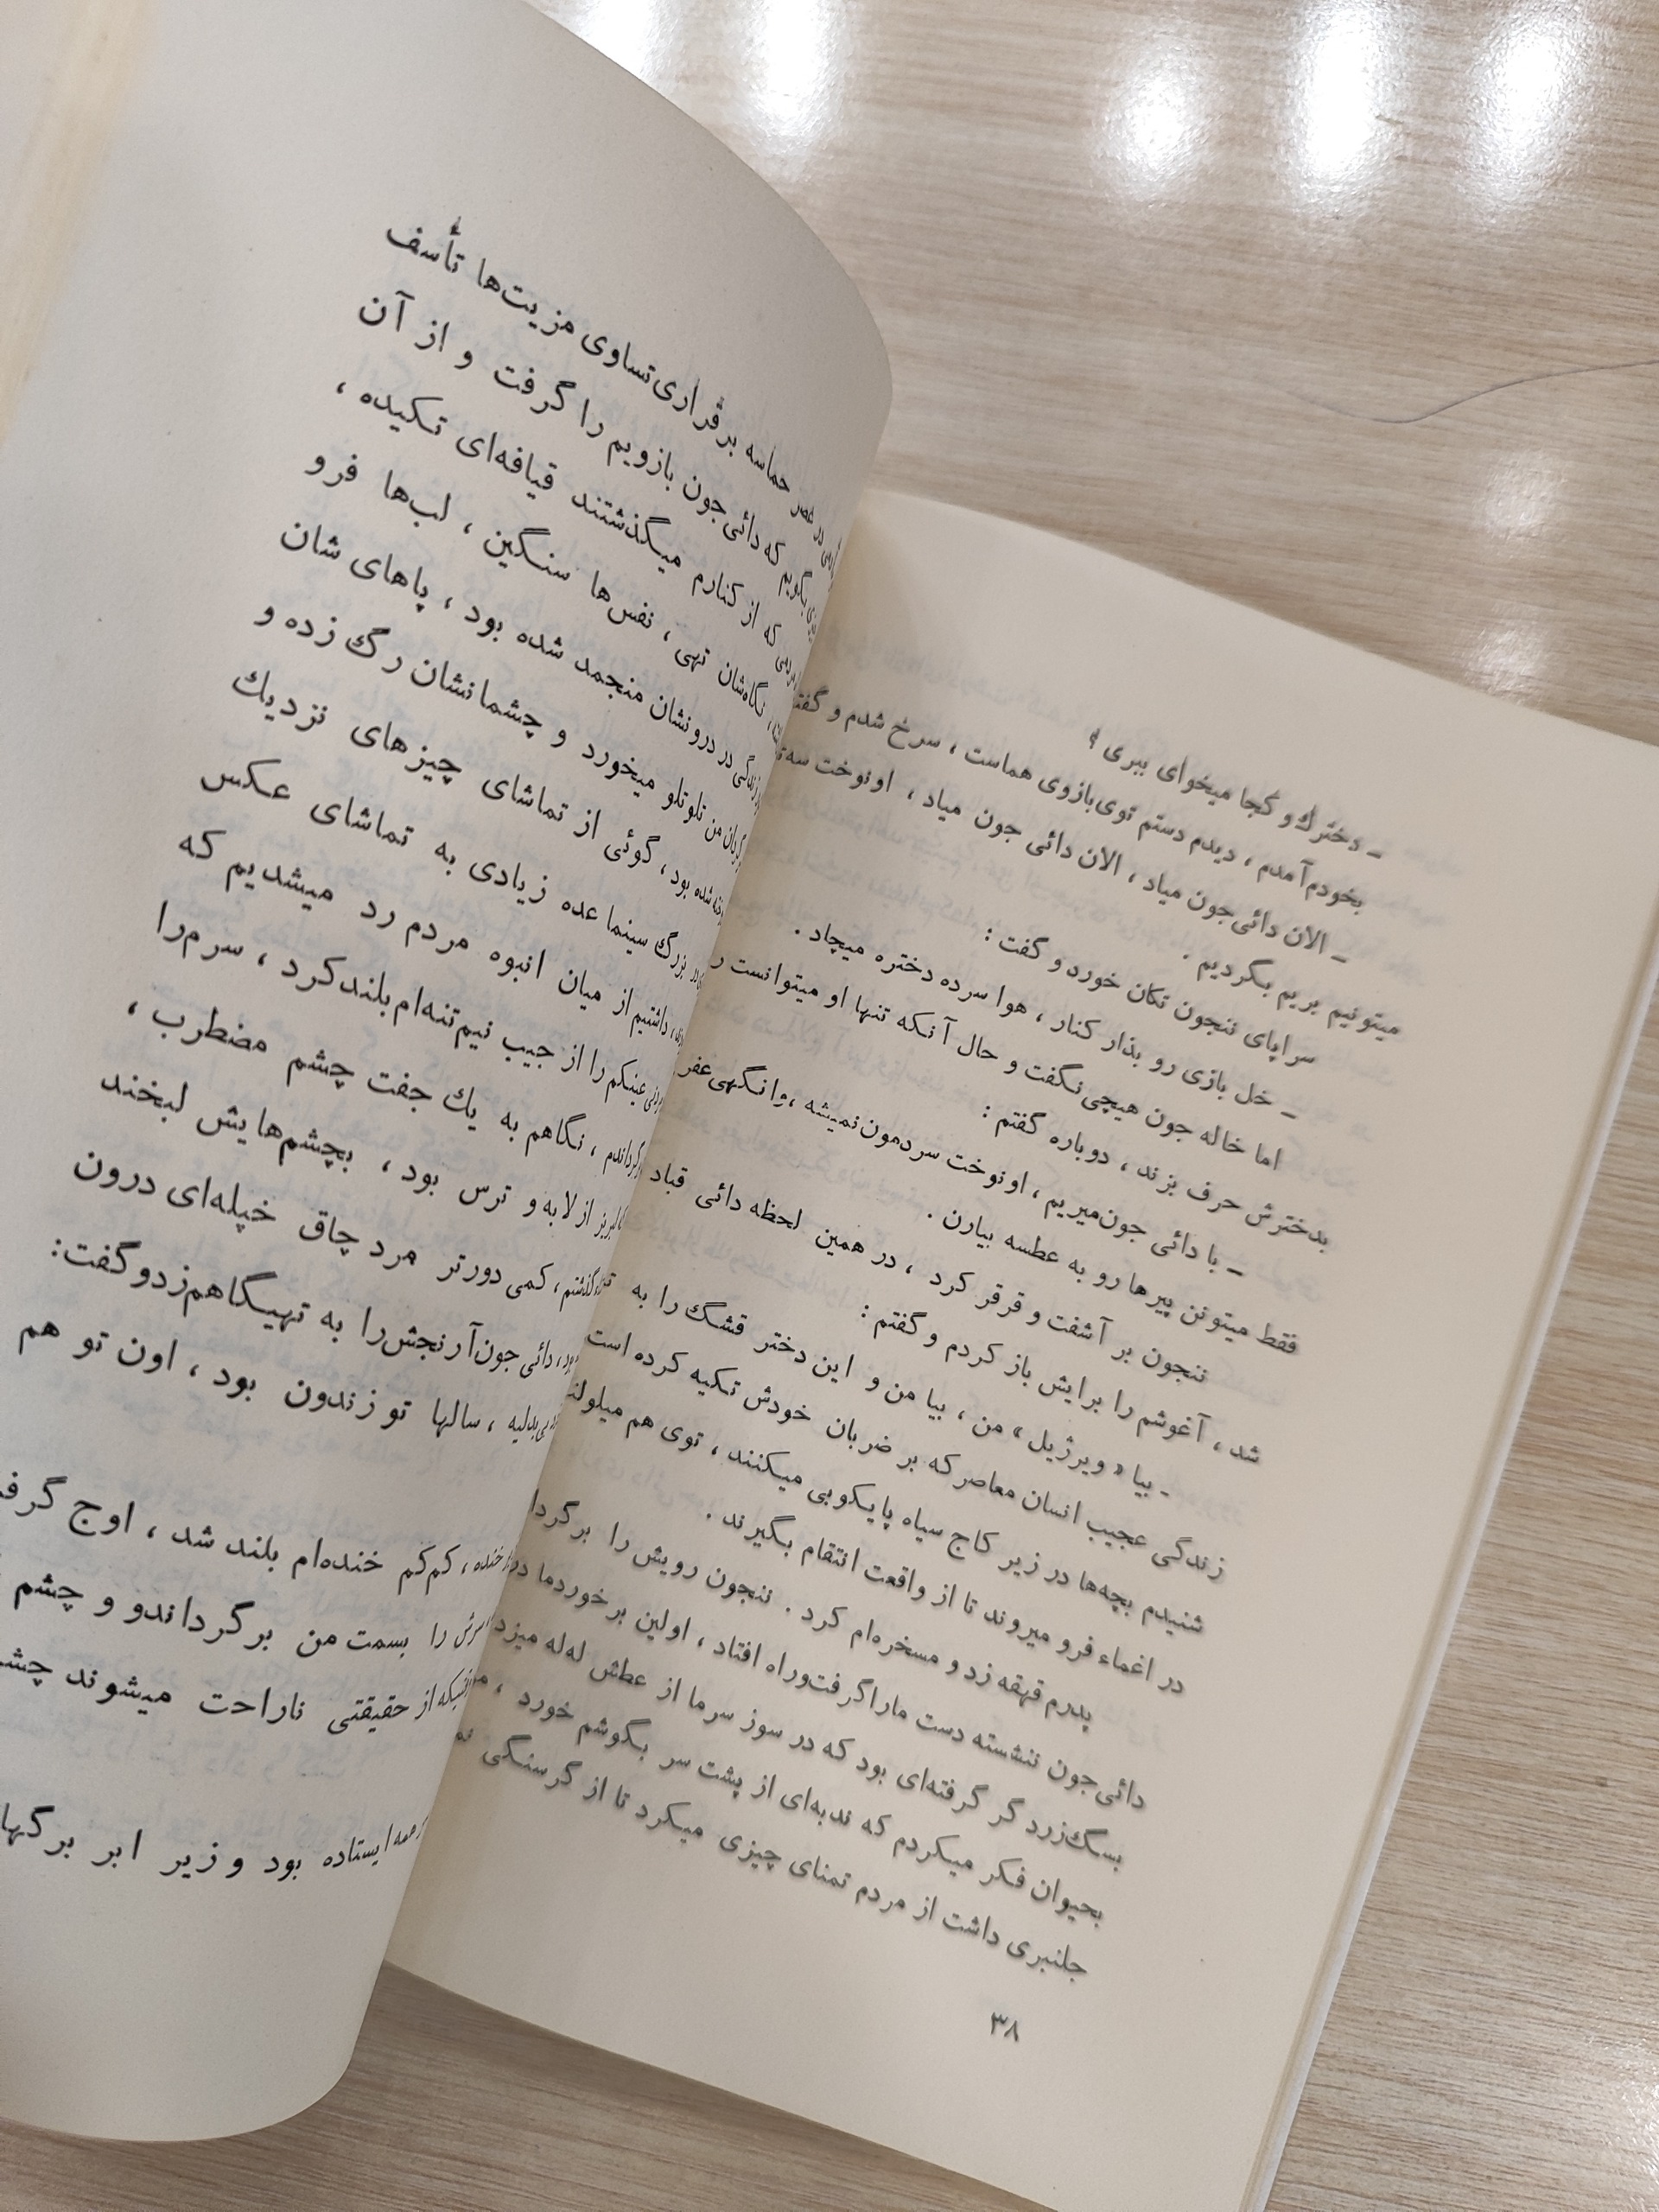 ـ دخترك و كجا میخوای ببری ؟
بخودم‌آمدم ، دیدم دستم توی‌بازوی هماست ، سرخ شدم و
ـ الان دائی‌جون میاد ، الان دائی جون میاد ، اونوخت
میتونیم بریم بگردیم .
سراپای ننجون تكان خورد و گفت :
ـ خل بازی رو بذار كنار ، هوا سرده دختره میچاد .
اما خاله جون هیچی‌نگفت و حال آنكه تنها او میتوانست
بدخترش حرف بزند ، دوباره گفتم :
ـ با دائی جون‌میریم ، اونوخت سردمون‌نمیشه ،
فقط میتونن پیرها رو به عطسه بیارن .
ننجون بر آشفت و قرقر كرد ، در همین لحظه دائی قباد
شد ، آغوشم را برایش باز كردم و گفتم :
ـ بیا « ویرژیل » من ، بیا من و این دختر قشنگ را به
زندگی عجیب انسان معاصر كه بر ضربان خودش تكیه كرده است
شنیدم بچه‌ها در زیر كاج سیاه پایكوبی میكنند ، توی هم
در اغماء فرو میروند تا از واقعت انتقام بگیرند .
پدرم قهقه زد و مسخره‌ام كرد . ننجون رویش را
دائی‌جون ننشسته دست ماراگرفت‌وراه افتاد ، اولین برخوردما
بسگ‌زرد گر گرفته‌ای بود كه در سوز سرما از عطش له‌له میزد
بحیوان فكر میكردم كه ندبه‌ای از پشت سر بگوشم خورد ،
جلنبری داشت از مردم تمنای چیزی میكرد تا از گرسنگی
۳۸
حماسه برقراری‌تساوی مزیت‌ها تأسف
بگویم كه دائی‌جون بازویم را گرفت و از آن
كه از كنارم میگذشتند قیافه‌ای تكیده ،
نگاه‌شان تهی ، نفس‌ها سنگین ، لب‌ها فرو
در درونشان منجمد شده بود ، پاهای شان
تلوتلو میخورد و چشمانشان رگ زده و
شده بود ، گوئی از تماشای چیزهای نزدیك
بزرگ سینما عده زیادی به تماشای عكس
داشتیم از میان انبوه مردم رد میشدیم كه
عینكم را از جیب نیم‌تنه‌ام بلندكرد ، سرم‌را
نگاهم به یك جفت چشم مضطرب ،
از لابه‌و ترس بود ، بچشم‌هایش لبخند
كمی دورتر مرد چاق خپله‌ای درون
دائی جون‌آرنجش‌را به تهیگاهم‌زدوگفت:
سالها تو زندون بود ، اون تو هم
خنده ، كم‌كم خنده‌ام بلند شد ، اوج
را بسمت من برگرداندو و چشم
از حقیقتی ناراحت میشوند
ایستاده بود و زیر ابر